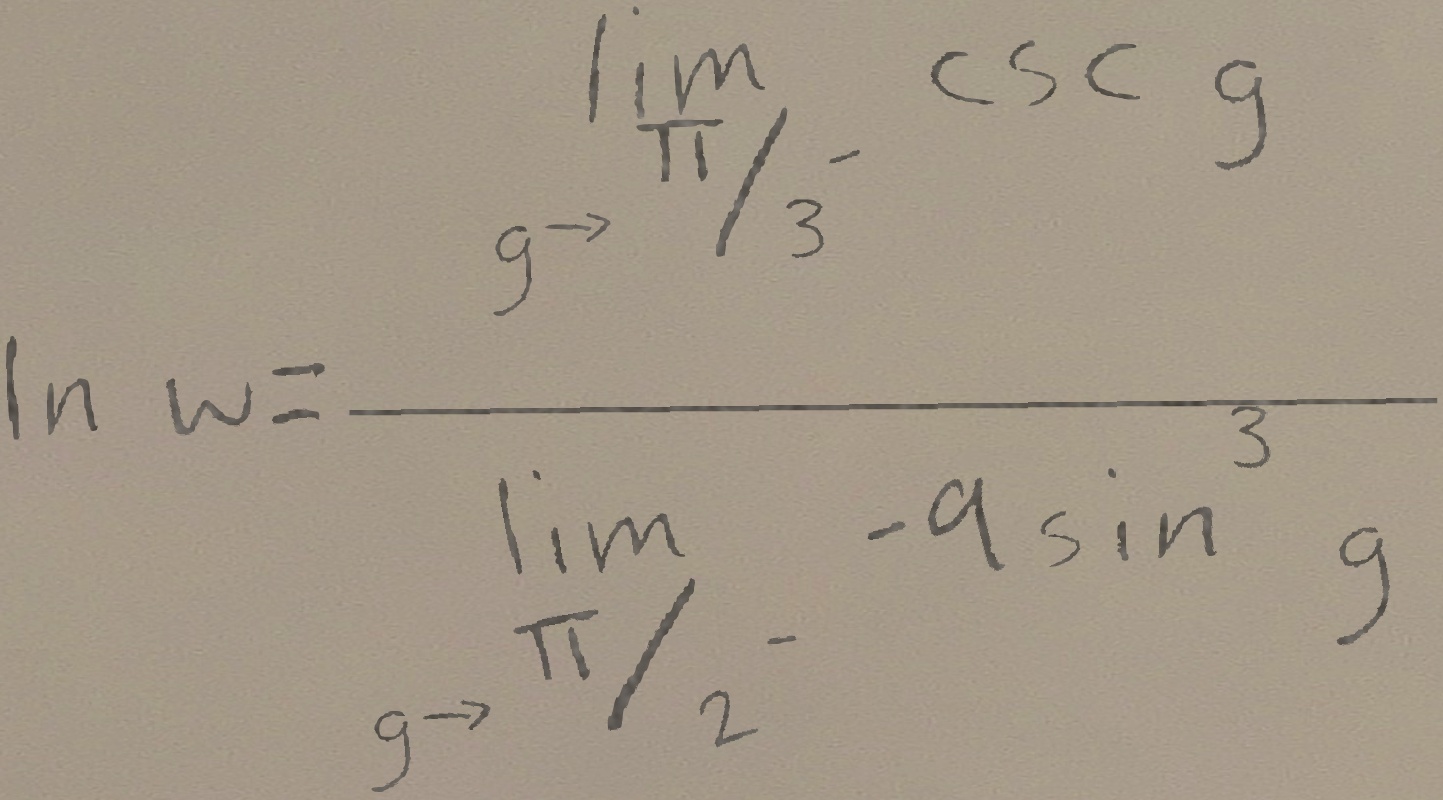 \ln w = \frac{\lim_{g \to \pi/3^-} \csc g}{\lim_{g \to \pi/2^-} -9 \sin^3 g}